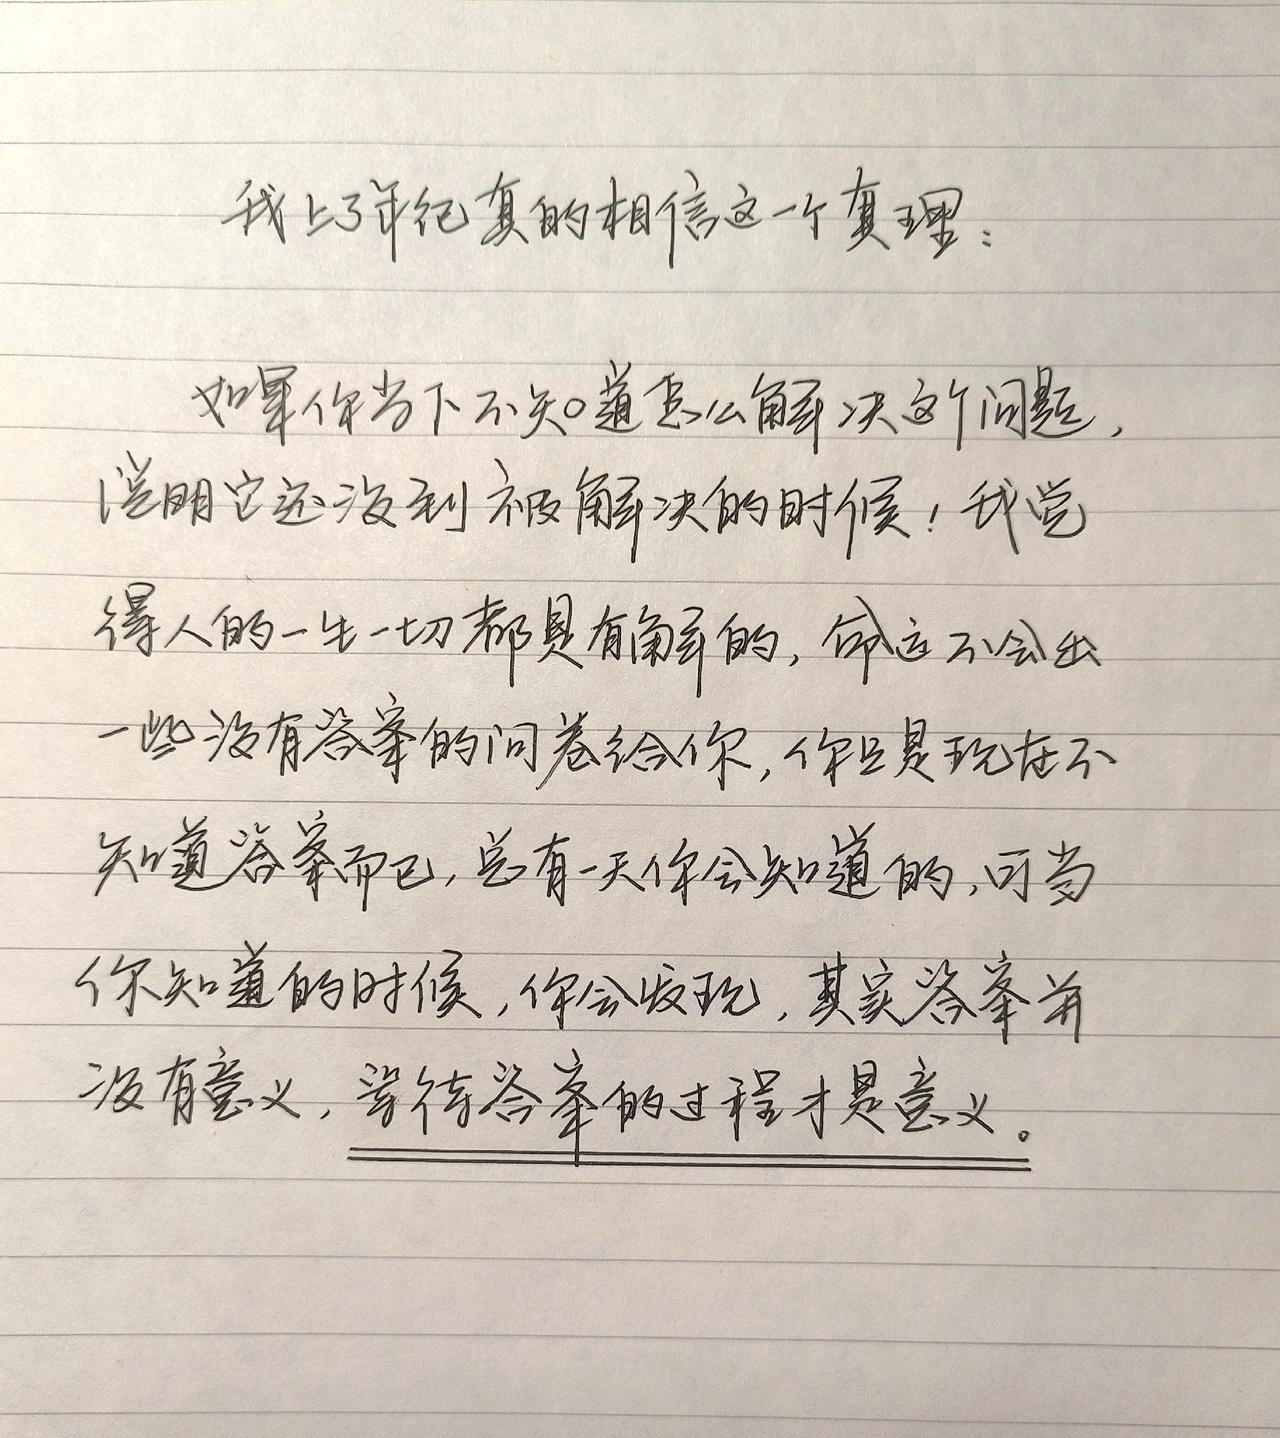 我上了年纪真的相信这一个真理：
如果你当下不知道怎么解决这个问题，
说明它还没到被解决的时候！我觉
得人的一生一切都是有解的，命运不会出
一些没有答案的问卷给你，你只是现在不
知道答案而已，总有一天你会知道的，可当
你知道的时候，你会发现，其实答案并
没有意义，等待答案的过程才是意义。